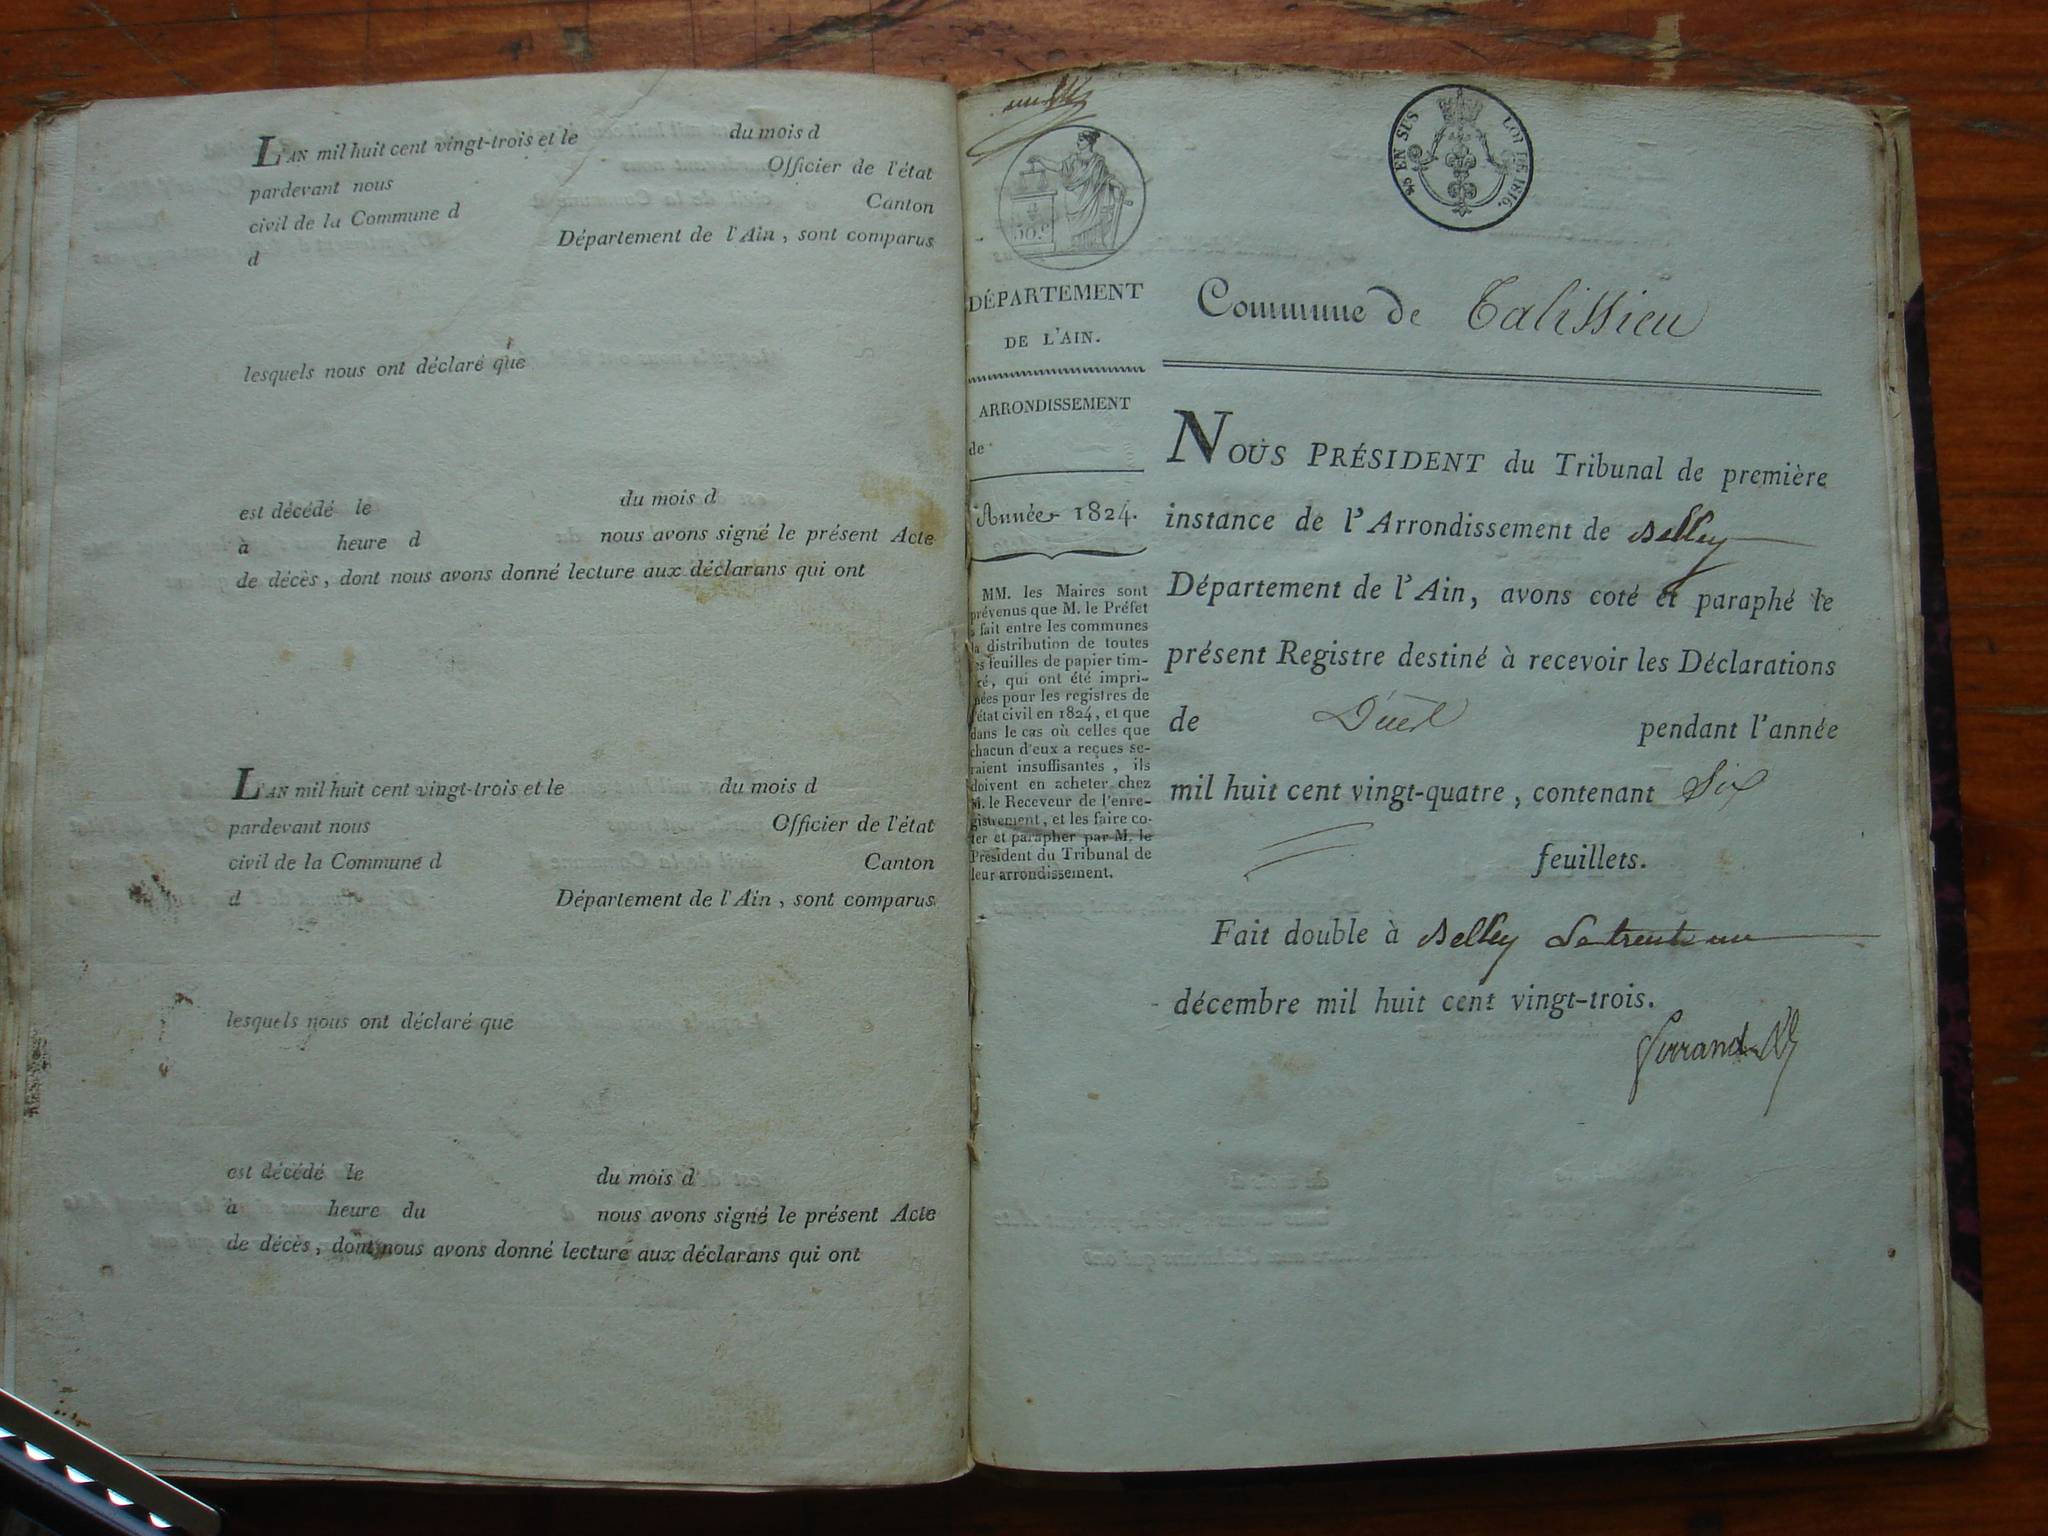 L'AN mil huit cent vingt-trois et le du mois d
pardevant nous Officier de l'état
civil de la Commune d Canton
d Département de l'Ain, sont comparus
lesquels nous ont déclaré que
est décédé le du mois d
à heure d nous avons signé le présent Acte
de décès, dont nous avons donné lecture aux déclarans qui ont
L'AN mil huit cent vingt-trois et le du mois d
pardevant nous Officier de l'état
civil de la Commune d Canton
d Département de l'Ain, sont comparus
lesquels nous ont déclaré que
est décédé le du mois d
à heure du nous avons signé le présent Acte
de décès, dont nous avons donné lecture aux déclarans qui ont
50.c
EN SUS LOI DE 1816.
DÉPARTEMENT
DE L'AIN.
ARRONDISSEMENT
de
Année 1824.
MM. les Maires sont
prévenus que M. le Préfet
a fait entre les communes
la distribution de toutes
les feuilles de papier tim-
bré, qui ont été impri-
mées pour les registres de
l'état civil en 1824, et que
dans le cas où celles que
chacun d'eux a reçues se-
raient insuffisantes, ils
doivent en acheter chez
M. le Receveur de l'enre-
gistrement, et les faire co-
ter et parapher par M. le
Président du Tribunal de
leur arrondissement.
Commune de Talissieu
NOUS PRÉSIDENT du Tribunal de première
instance de l'Arrondissement de Belley
Département de l'Ain, avons coté et paraphé le
présent Registre destiné à recevoir les Déclarations
de pendant l'année
mil huit cent vingt-quatre, contenant Six
feuillets.
Fait double à Belley Le trente un
décembre mil huit cent vingt-trois.